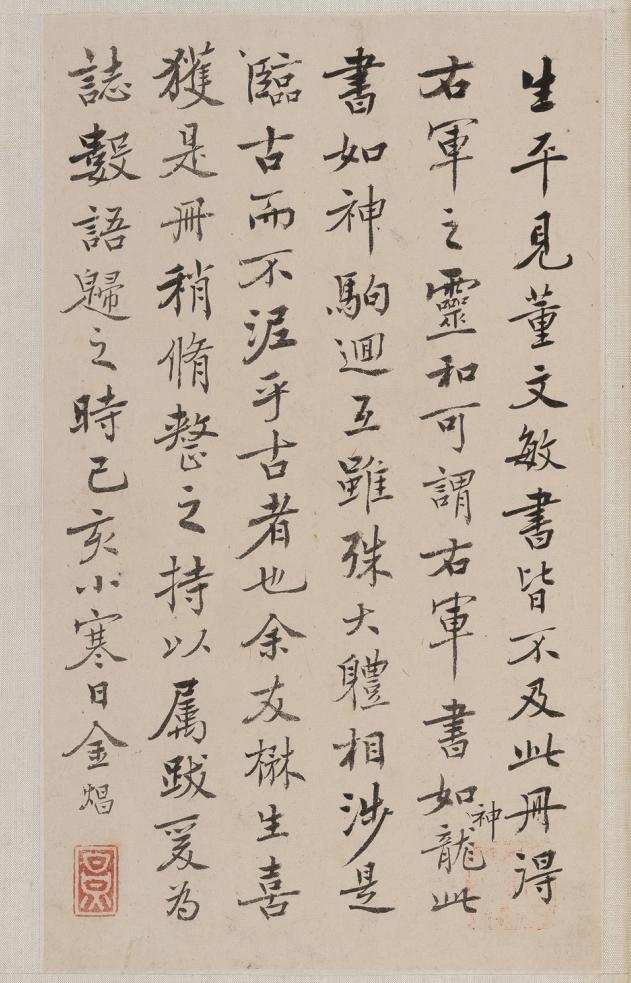 生平見董文敏書皆不及此冊得
右軍之靈和可謂右軍書如神龍此
書如神駒迴互雖殊大軆相涉是
臨古而不泥乎古者也余友楙生喜
獲是冊稍脩整之持以属跋爰為
誌數語歸之時己亥小寒日金熀